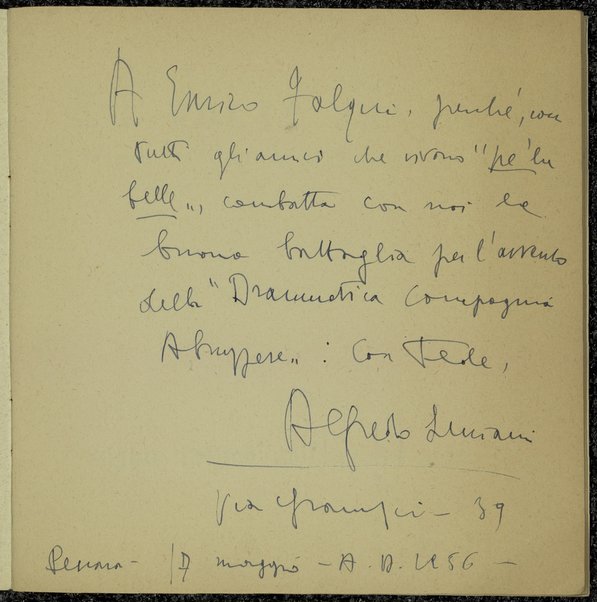 A Enrico Falqui, perché, con
tutti gli amici che vivono "pe' lu
belle", combatta con noi la
buona battaglia per l'avvento
della "Drammatica Compagnia
Abruzzese": Con fede,
Alfredo Luciani
Via Gramsci - 39
Pescara - 17 maggio - A. D. 1956 -